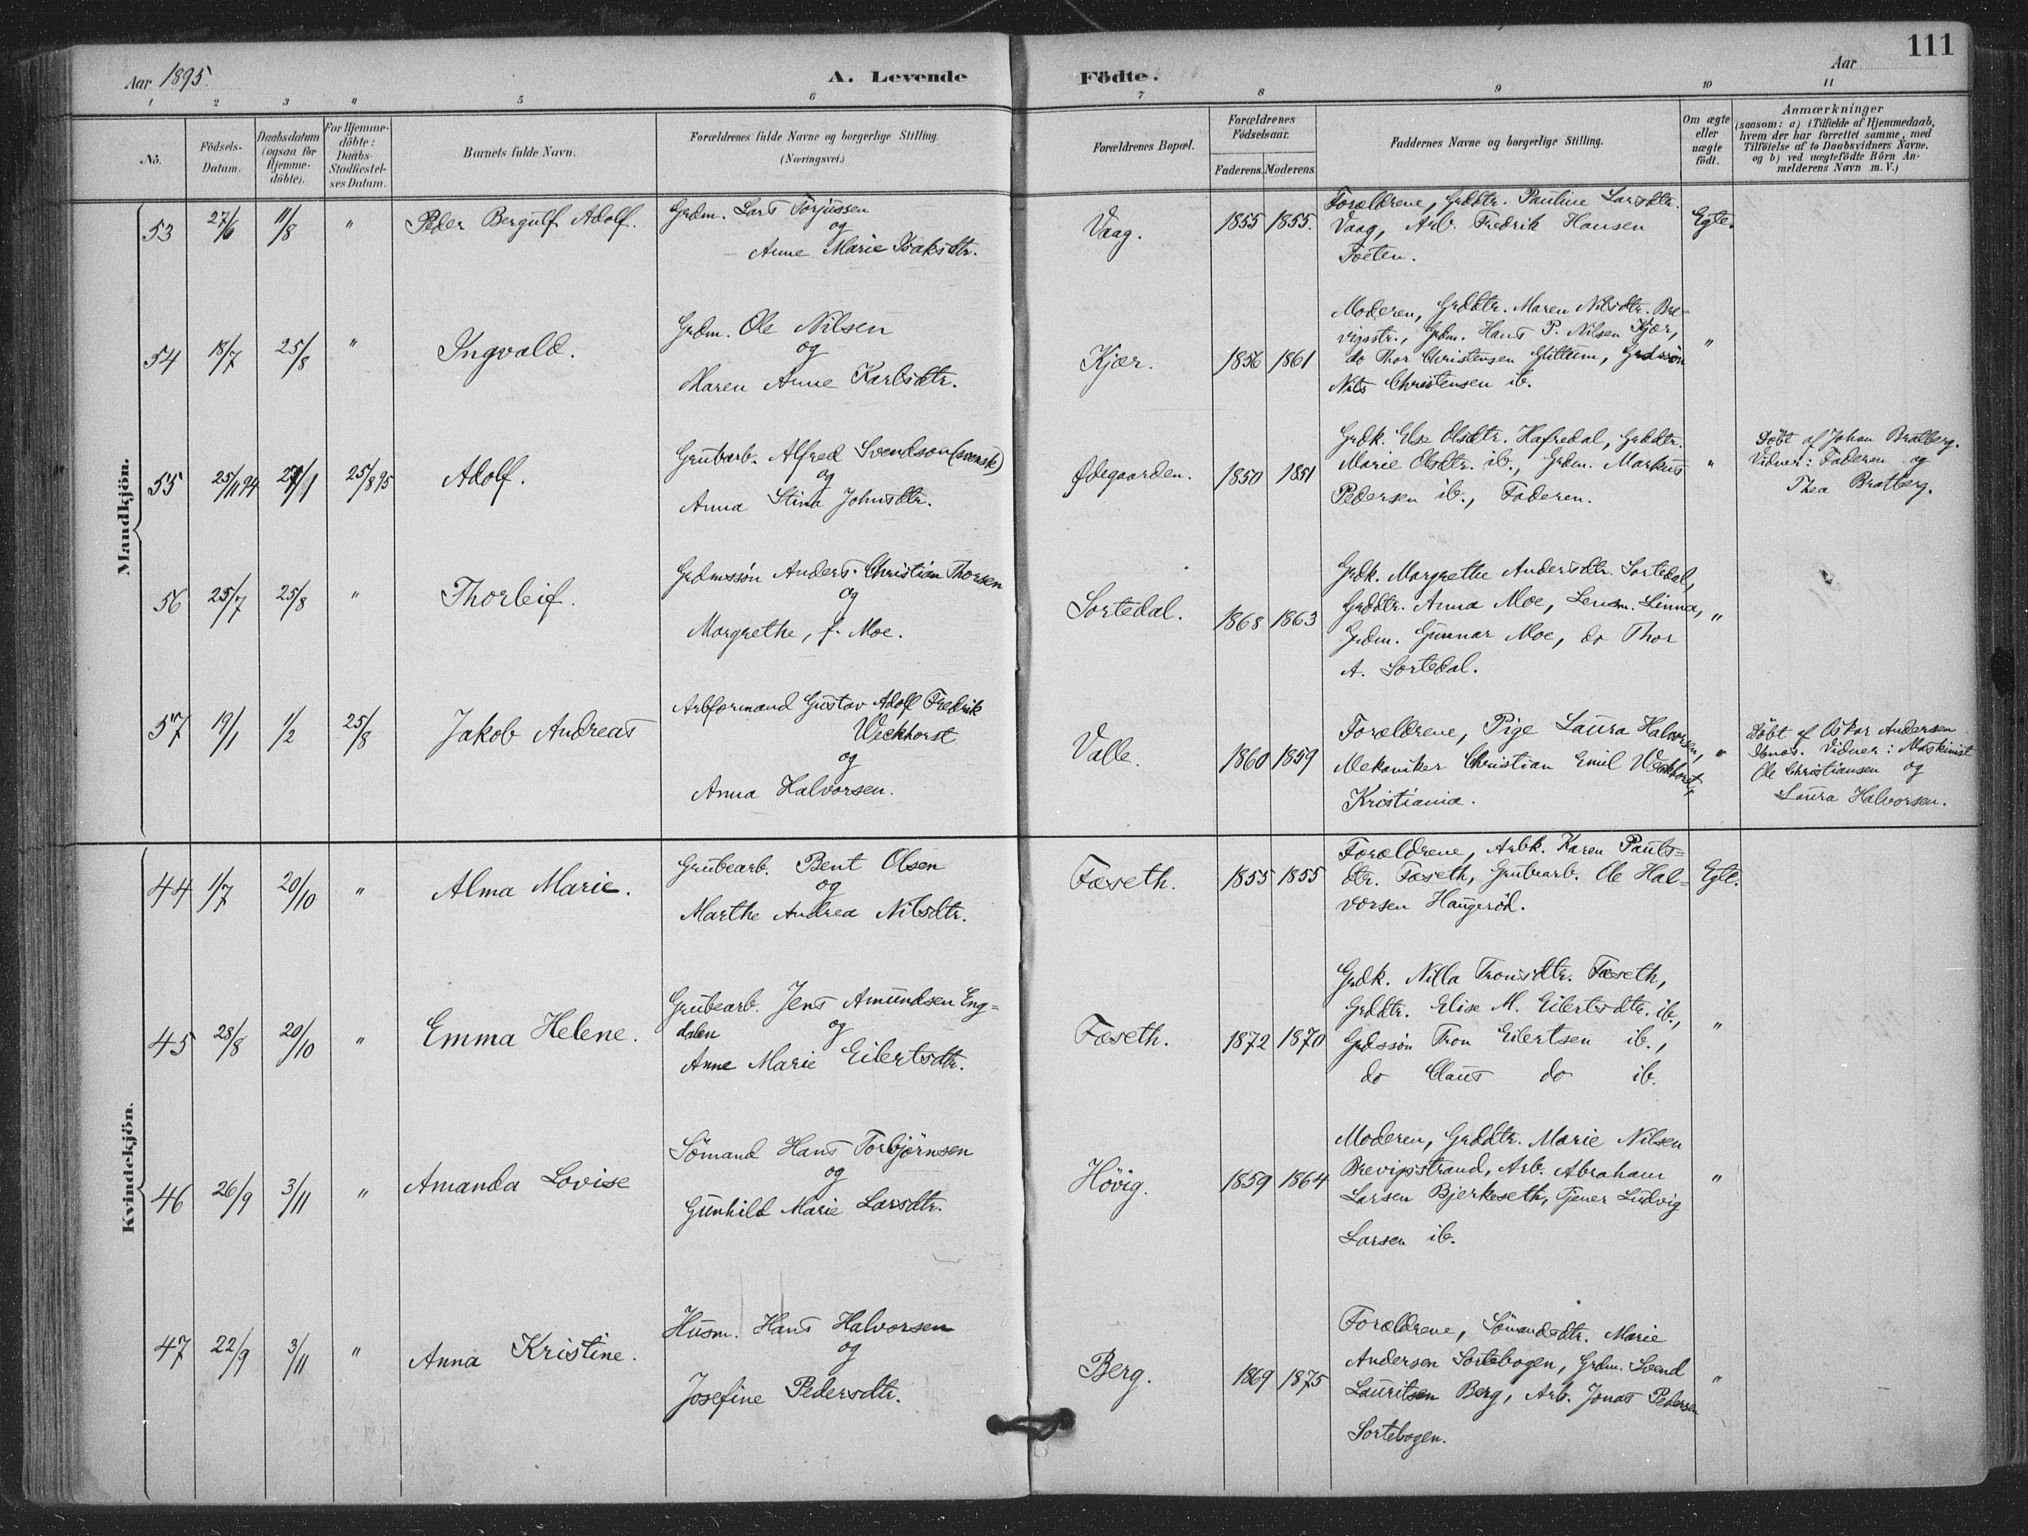 111
Aar 1895. A. Levende Födte. Aar
1 2 3 4 5 6 7 8 9 10 11
No.
Födsels-Datum.
Daabsdatum (ogsaa for Hjemmedöbte).
For Hjemmedöbte: Daabs-Stadfæstelses Datum.
Barnets fulde Navn.
Forældrenes fulde Navne og borgerlige Stilling. (Næringsvei.)
Forældrenes Bopæl.
Forældrenes Födselsaar.
Faderens. Moderens.
Faddernes Navne og borgerlige Stilling.
Om ægte eller uægte födt.
Anmærkninger
(saasom: a) i Tilfælde af Hjemmedaab,
hvem der har forrettet samme, med
Tilföielse af to Daabsvidners Navne,
og b) ved uægtefödte Börn An-
melderens Navn m. V.)
Mandkjön.
53 27/6 11/8 " Peder Bergulf Adolf.
Grdm. Lars Torjussen
og
Anne Marie Isaksdtr.
Vaag. 1855 1855.
Forældrene, Grddtr. Pauline Larsdtr.
Vaag, Arb. Fredrik Hansen
Tveten.
Egte.
54 18/7 25/8 " Ingvald.
Grdm. Ole Nilsen
og
Maren Anne Karlsdtr.
Kjær. 1856 1861
Moderen, Grddtr. Maren Nilsdtr. Bre-
vigsstr., Grdm. Hans P. Nilsen Kjær,
do Thor Christensen Glittum, Grdssön
Nils Christensen ib.
"
55 25/11 94 27/1 25/8 95 Adolf.
Grubarb. Alfred Svendson (svensk)
og
Anna Stina Johnsdtr.
Ødegaarden. 1850 1851
Grdk. Else Olsdtr. Hafredal, Grddtr.
Marie Olsdtr. ib., Grdm. Markus
Pedersen ib., Faderen.
"
Döbt af Johan Bratberg.
Vidner: Faderen og
Thea Bratberg.
56 25/7 25/8 " Thorleif.
Grdmssön Anders Christian Thorsen
og
Margrethe, f. Moe.
Sortedal. 1868 1863
Grdk. Margrethe Andersdtr. Sortedal,
Grddtr. Anna Moe, Lensm. Linna,
Grdm. Gunnar Moe, do Thor
A. Sortedal.
"
57 19/1 1/2 25/8 Jakob Andreas
Arbformand Gustav Adolf Fredrik
Weckhorst
og
Anna Halvorsen.
Valle. 1860 1859
Forældrene, Pige Laura Halvorsen,
Mekaniker Christian Emil Weckhorst,
Kristiania.
"
Döbt af Oskar Andersen
Vidner: Maskinist
Ole Christiansen og
Laura Halvorsen.
Kvindekjön.
44 1/7 20/10 " Alma Marie.
Grubearb. Bent Olsen
og
Marthe Andrea Nilsdtr.
Fæseth. 1855 1855
Forældrene, Arbk. Karen Pauls-
dtr. Fæseth, Grubearb. Ole Hal-
vorsen Haugeröd.
Egte.
45 28/8 20/10 " Emma Helene.
Grubearb. Jens Amundsen Eng-
dalen og
Anne Marie Eilertsdtr.
Fæseth. 1872 1870
Grdk. Nilla Tronsdtr. Fæseth,
Grddtr. Elise M. Eilertsdtr. ib.,
Grdssön Tron Eilertsen ib.,
do Claus do ib.
"
46 26/9 3/11 " Amanda Lovise
Sömand Hans Torbjørnsen
og
Gunhild Marie Larsdtr.
Hövig. 1859 1864
Moderen, Grddtr. Marie Nilsen
Brevigsstrand, Arb. Abraham
Larsen Bjerkeseth, Tjener Ludvig
Larsen ib.
"
47 22/9 3/11 " Anna Kristine.
Husm. Hans Halvorsen
og
Josefine Pedersdtr.
Berg. 1869 1875
Forældrene, Sömandsdtr. Marie
Andersen Sortebogen, Grdm. Svend
Lauritsen Berg, Arb. Jonas Pedersen
Sortebogen.
"